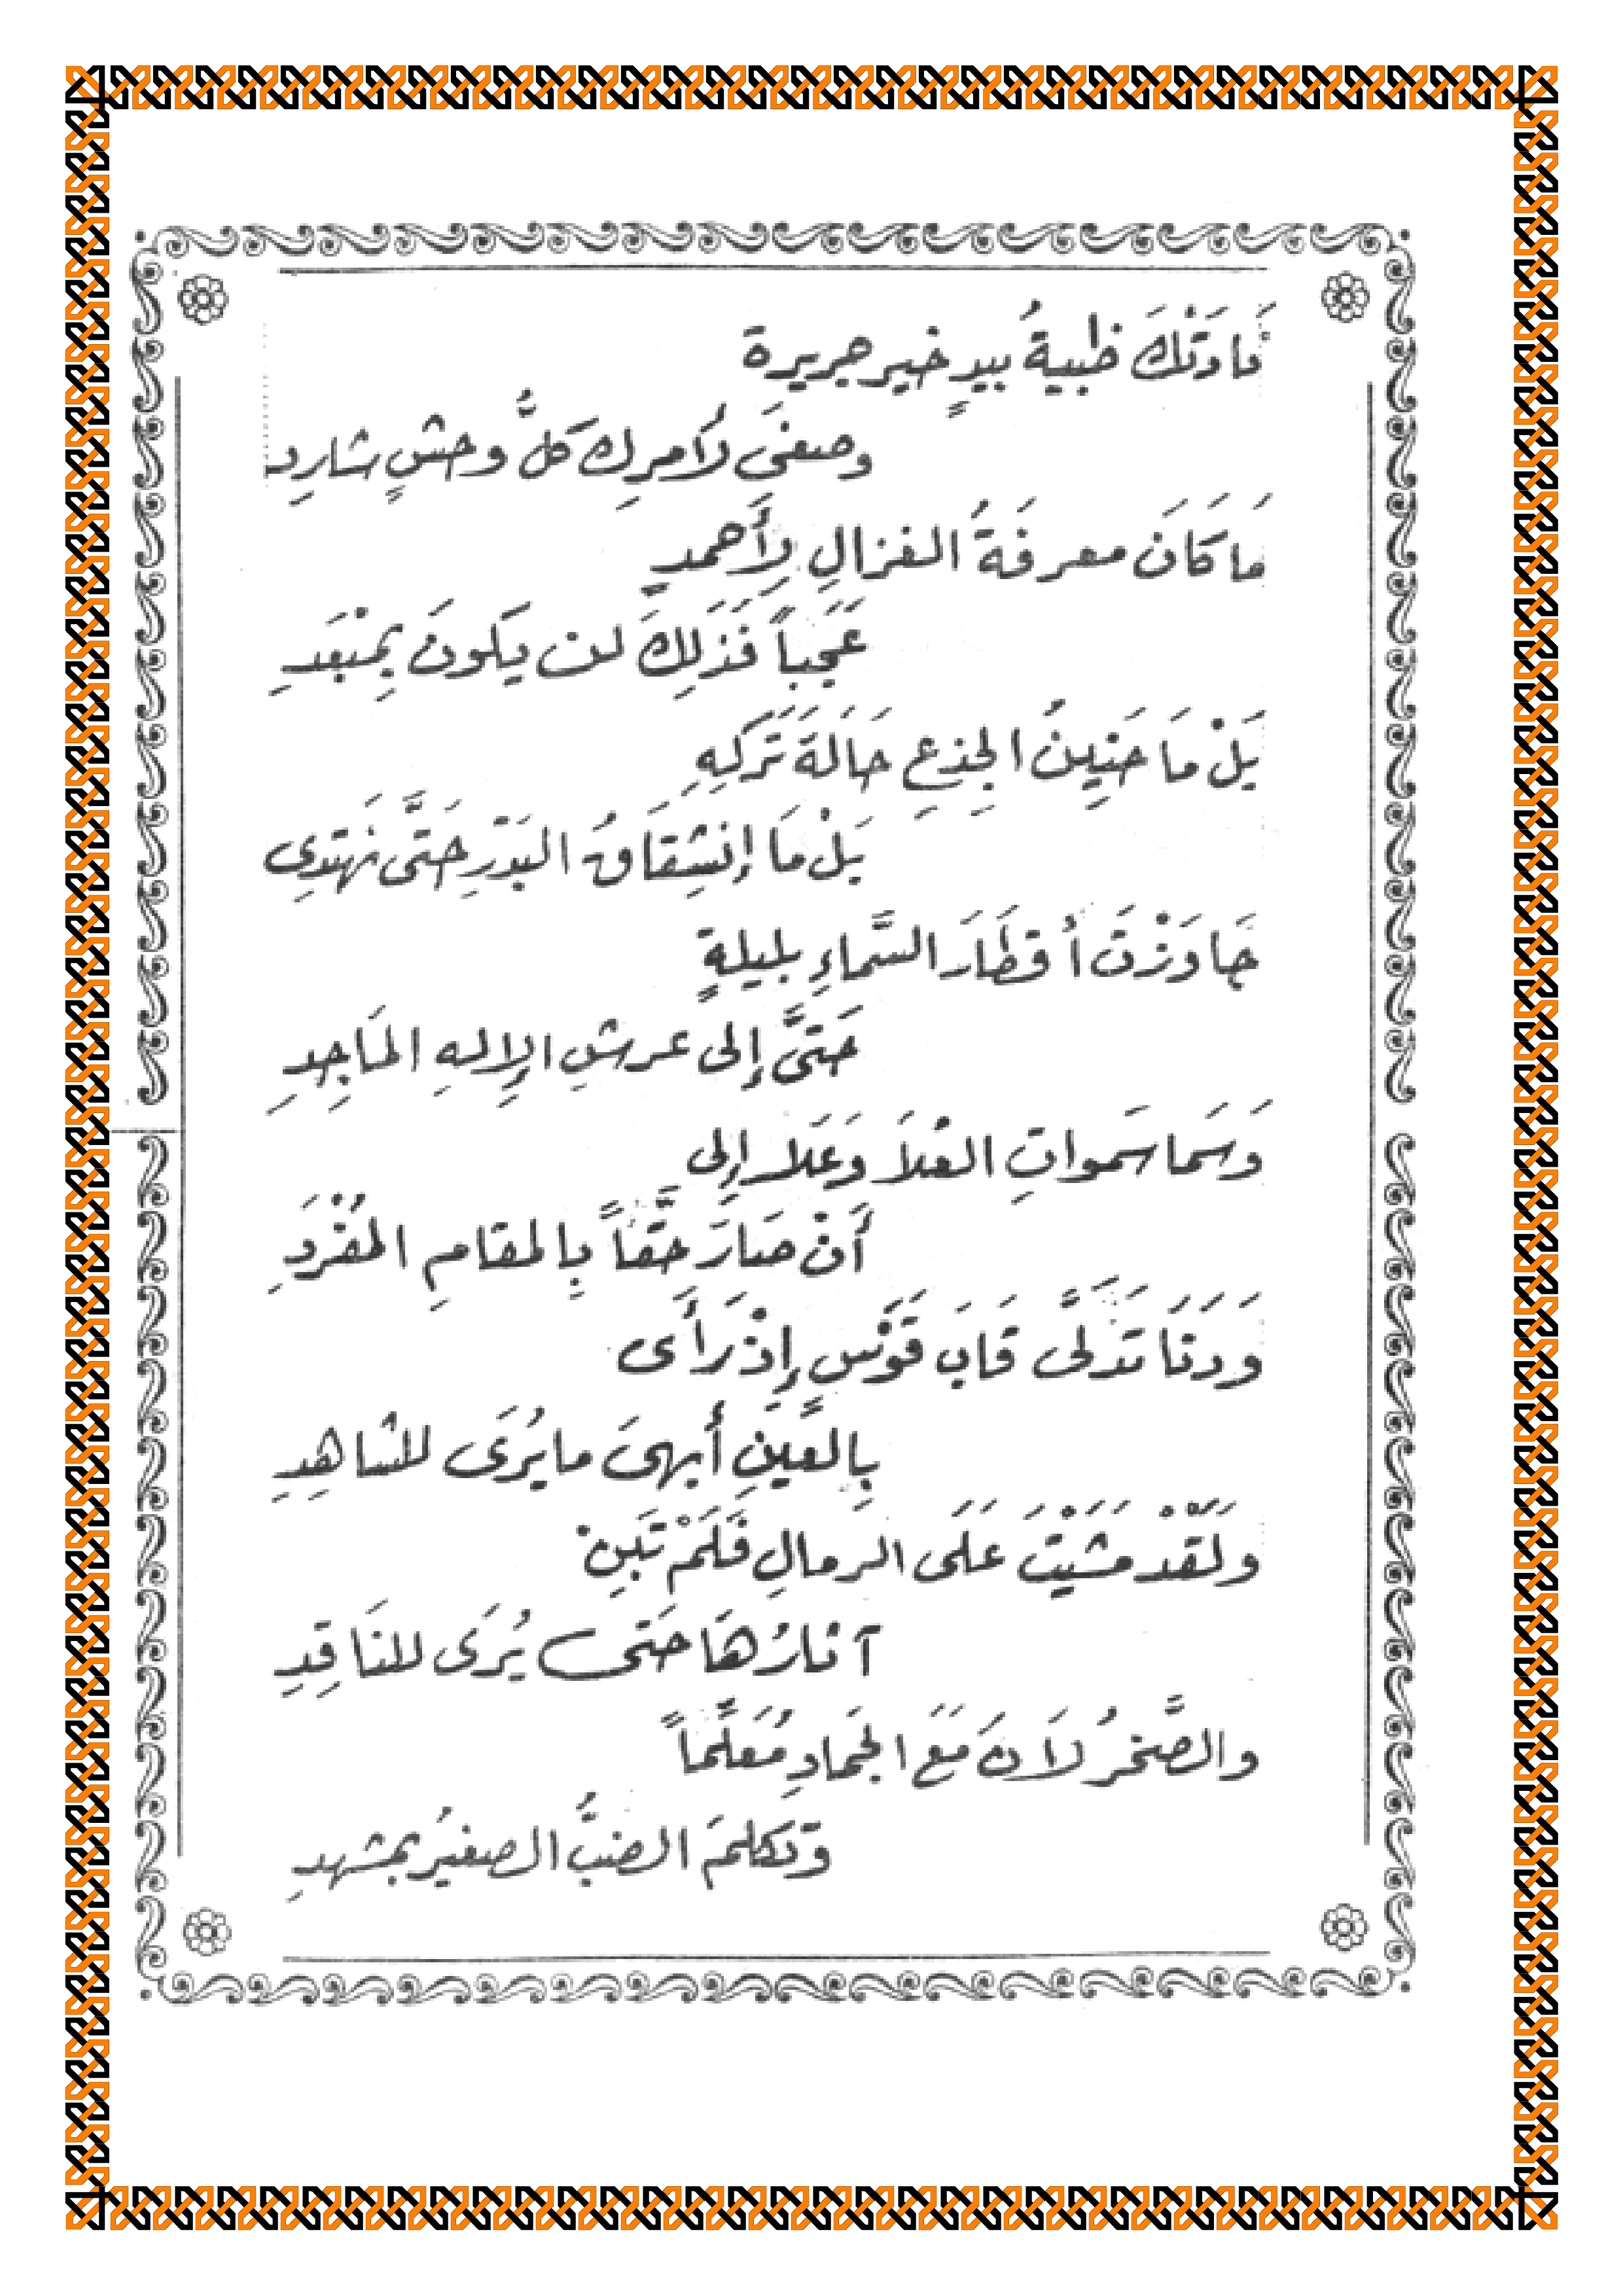 نَادَتْكَ ظبيةُ بيدٍ خير جريرة
وصغَى لأمرِك كلُّ وحشٍ شاردِ
مَا كَانَ معرفَةُ الغزالِ لِأَحمدٍ
عَجَباً فَذَلِكَ لن يكونَ بِمُبْعَدِ
بَلْ مَا حَنِينُ الجِذعِ حَالَةَ تَركِهِ
بَلْ مَا إنشِقَاقُ البَدْرِ حَتَّى نَهتدِى
جَاوَزْتَ أقطَارَ السَّماءِ بليلةٍ
حَتَّى إلى عرشِ الإِلهِ المَاجِدِ
وَسَما سَمواتِ العُلاَ وَعَلا إلى
أَنْ صَارَ حَقَّاً بِالمقامِ المُفْرَدِ
وَدَنَا تَدَلَّى قَابَ قَوْسٍ إِذْ رَأَى
بِالعينِ أَبهىَ ما يُرَى للشاهِدِ
ولَقَدْ مَشَيْتَ عَلَى الرمالِ فَلَمْ تَبِنْ
آثارُهَا حَتى يُرَى للنَاقِدِ
والصَّخرُ لاَنَ مَعَ الجَمادِ مُعَلَّماً
وتكلمَ الضبُّ الصغيرُ بمشهدِ